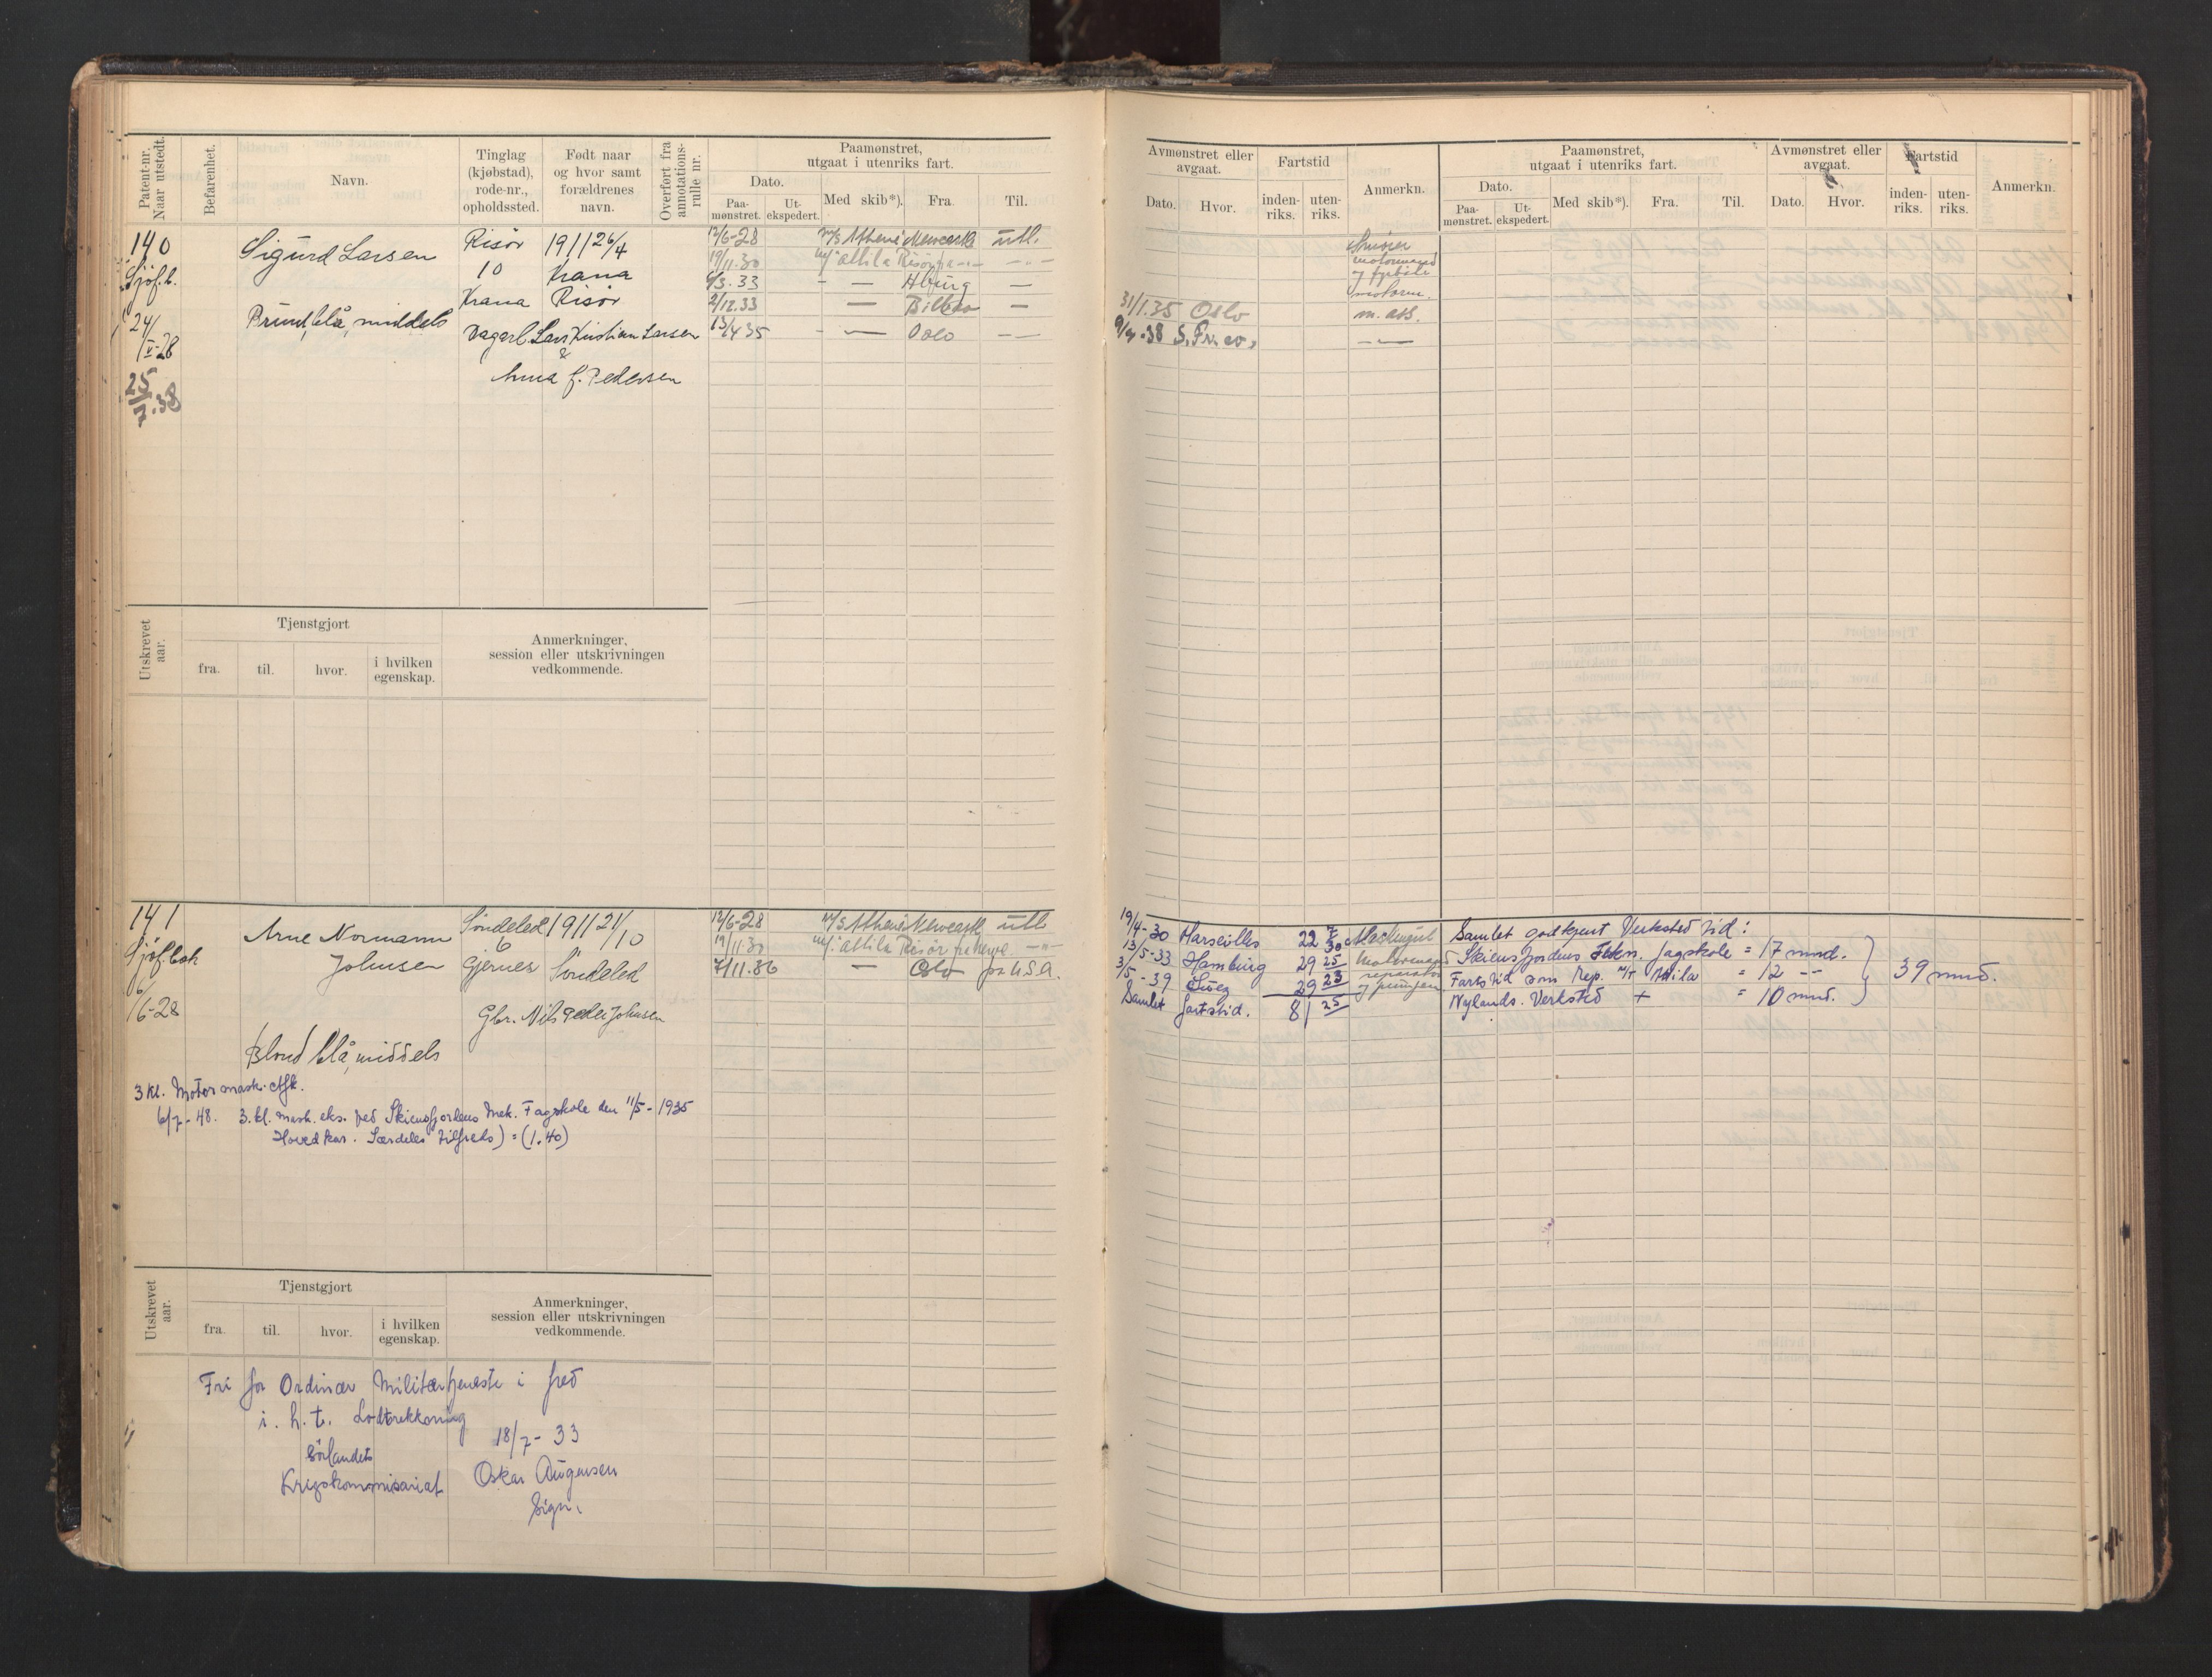 Patent-nr. Naar utstedt.
Befarenhet.
Navn.
Tinglag (kjøbstad), rode-nr., opholdssted.
Født naar og hvor samt forældrenes navn.
Overført fra annotations-rulle nr.
Paamønstret, utgaat i utenriks fart.
Dato.
Paa-mønstret.
Ut-ekspedert.
Med skib*).
Fra.
Til.
140
Sjøf.b.
24/V-28
25/7.38
Sigurd Larsen
Brun, blå, middels
Risør
10
Krana
1911 26/4
Krana
Risør
Dagarb. Lars Kristian Larsen
&
Anna f. Pedersen
12/6-28 m/s Athene Newcastle utl.
19/11.30 m/j Attila Risør pa -"-
6/3.33 - — Hburg —
2/12.33 — Bilbao —
13/4 35 - — Oslo — —
Utskrevet aar.
Tjenstgjort
fra.
til.
hvor.
i hvilken egenskap.
Anmerkninger, session eller utskrivningen vedkommende.
141
Sjøf.bok
6/6-28
Arne Normann
Johnsen
Blond blå, middels
Søndeled
6
Gjernes
1911 21/10
Søndeled
Gbr. Nils Peder Johnsen
12/6-28 m/s Athene Newcastle utl
19/11.30 m/j. Attila Risør
7/11.36 — Oslo pa U.S.A.
3 kl. Motormask.
6/7-48. 3.kl. mask. eks. ved Skiensfjordens Mek. Fagskole den 11/5-1935
Hovedkar. Særdeles tilfreds) = (1.40)
Utskrevet aar.
Tjenstgjort
fra.
til.
hvor.
i hvilken egenskap.
Anmerkninger, session eller utskrivningen vedkommende.
Fri for Ordinær Militærtjeneste i fred
i. h. t. Lodtrekkning
18/7-33
Sørlandets
Krigskommisariat
Oskar Augensen
Sign.
Avmønstret eller avgaat.
Dato.
Hvor.
Fartstid
inden-riks.
uten-riks.
Anmerkn.
Paamønstret, utgaat i utenriks fart.
Dato.
Paa-mønstret.
Ut-ekspedert.
Med skib*).
Fra.
Til.
Avmønstret eller avgaat.
Dato.
Hvor.
Fartstid
inden-riks.
uten-riks.
Anmerkn.
Smører
motormand
og fyrbøter
motorm.
31/1.35 Oslo m. ass.
9/4.38 S. Fr. co. -"-
19/4-30 Marseilles 22 7/30 Maskingut
13/5-33 Hamburg 29 25/ Motormand
3/5-39 Suez 29 23/ reparatør
og pumpem.
Samlet fartstid. 81 25/
Samlet godkjent Verksted tid:
Skiensfjordens Tekn. fagskole = 17 mnd.
Fartstid som Rep. M/T Attila = 12 -"-
Nylands. Verksted + = 10 mnd.
39 mnd.